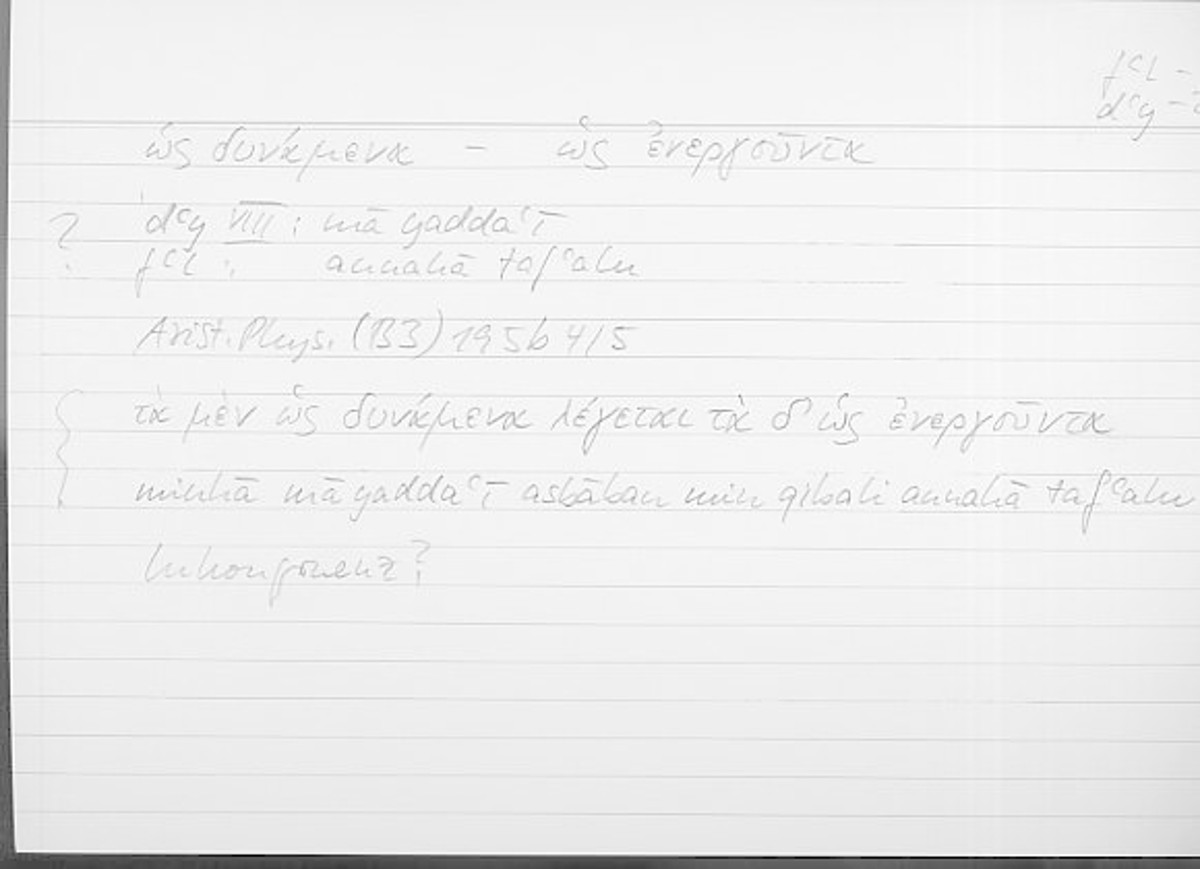 fʿl –
dʿy –
ὡς δυνάμενα – ὡς ἐνεργοῦντα
? dʿy VIII: mā yaddaʿī
fʿl: annahā tafʿalu
Arist. Phys. (B3) 195b 4/5
τὰ μὲν ὡς δυνάμενα λέγεται τὰ δ' ὡς ἐνεργοῦντα
minhā mā yaddaʿī asbāban min qibali annahā tafʿalu
Inkongruenz?